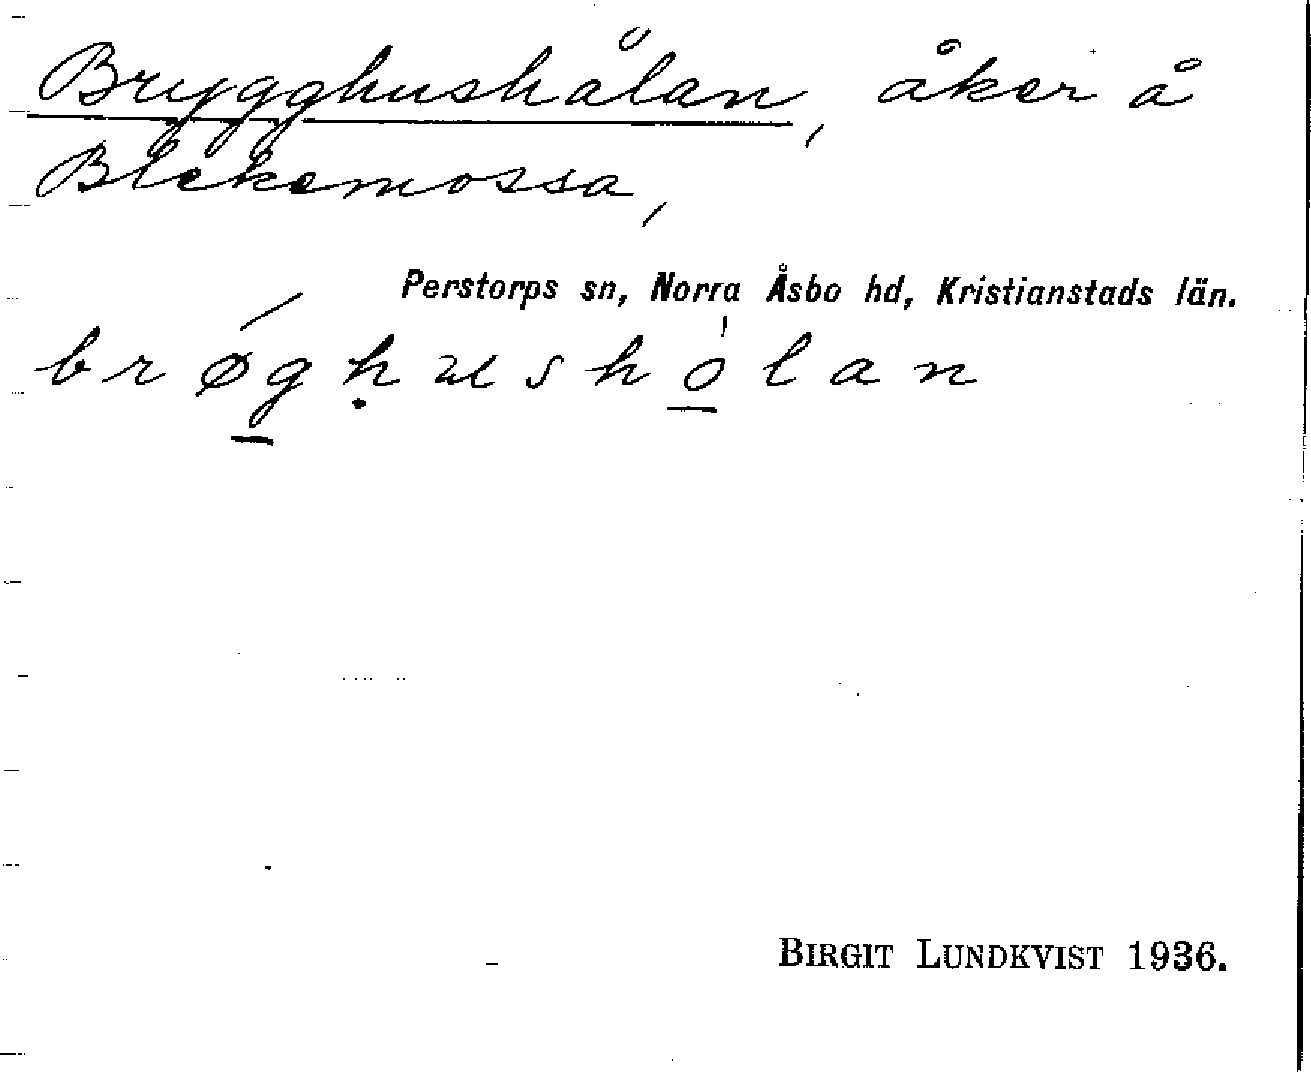 Brygghushålan, åker å
Blekemossa,
Perstorps sn, Norra Åsbo hd, Kristianstads län.
brøg̲ḥusho̲lan
BIRGIT LUNDKVIST 1936.